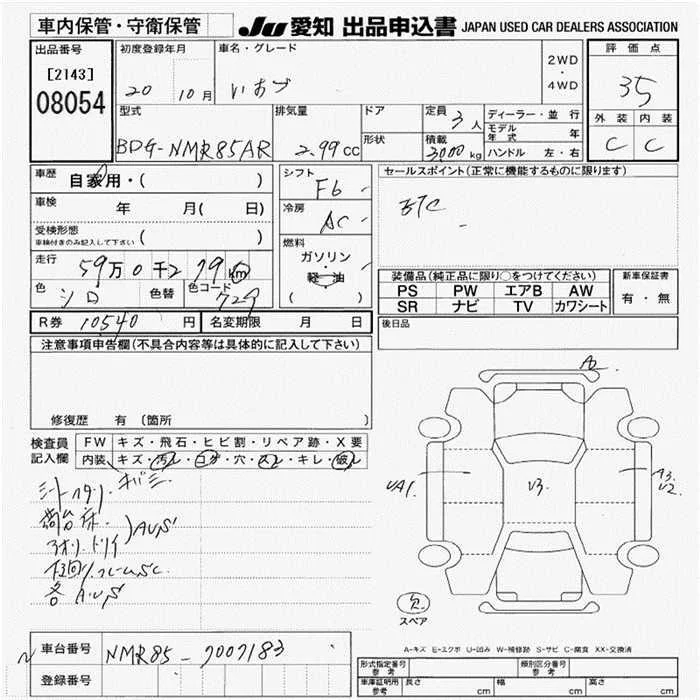 車内保管・守衛保管
JU 愛知 出品申込書 JAPAN USED CAR DEALERS ASSOCIATION
出品番号
[2143]
08054
初度登録年月
20 10月
車名・グレード
いすゞ
2WD
・
4WD
評価点
35
外装 内装
C C
型式
BDG-NMR85AR
排気量
2.99cc
ドア
形状
定員 3人
積載 3000kg
ディーラー・並行
モデル年式 年
ハンドル 左・右
車歴 自家用・( )
車検 年 月( 日)
受検形態
車検付きのみ記入して下さい ( )
走行 59万0千279km
色 シロ 色替 色コード 729
シフト F6
冷房 AC
燃料
ガソリン・
軽油
( )
セールスポイント(正常に機能するものに限ります)
ETC
装備品(純正品に限り○をつけてください)
PS PW エアB AW
SR ナビ TV カワシート
新車保証書
有・無
R券 10540円 名変期限 月 日
後日品
注意事項申告欄(不具合内容等は具体的に記入して下さい)
修復歴 有 〔箇所 〕
検査員
記入欄
FW キズ・飛石・ヒビ割・リペア跡・X要
内装 キズ・汚レ・コゲ・穴・スレ・キレ・破レ
A2
UA1
V3
A3
V2
欠
スペア
A-キズ E-エクボ U-凹み W-補修跡 S-サビ C-腐食 XX-交換済
車台番号 NMR85-7007183
登録番号
型式指定番号
参考
類別区分番号
参考
車庫証明用
参考
長さ cm 幅 cm 高さ cm